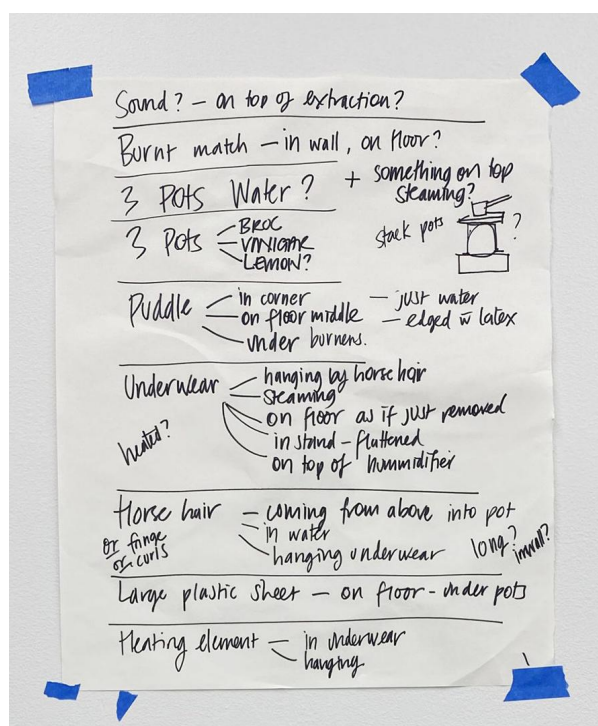 Sound? – on top of extraction?
Burnt match – in wall, on floor?
3 POTS Water? + something on top
steaming?
3 POTS – BROC
– VINIGAR
– LEMON?
stack pots ?
Puddle – in corner – just water
– on floor middle – edged w̄ latex
– under burners.
Underwear – hanging by horse hair
– steaming
on floor as if just removed
in stand – flattened
on top of hummidifier
heated?
Horse hair – coming from above into pot
– in water
– hanging underwear long? inwall?
or fringe
or curls
Large plastic sheet – on floor – under pots
Heating element – in underwear
– hanging